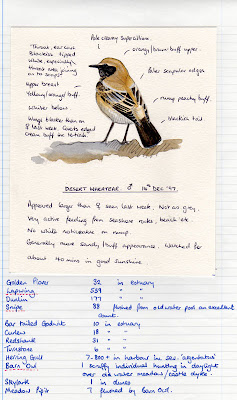 Pale creamy supercilium.
Throat, ear covs
Blackish tipped
white, especially
where area joining
on to scaps
orange/brown buff upper.
Paler scapular edges
Upper breast
Yellowy/orangy buff.
rump peachy buff
White below
Wings blacker than on
8 last week. Coverts edged
Cream buff in tertials
blackish tail
DESERT WHEATEAR ♂ 14th DEC '97.
Appeared larger than 8 seen last week. Not as grey.
Very active feeding from seashore rocks, beach etc.
No white noticeable on rump.
Generally more sandy/buff appearance. Watched for
about 40 mins in good sunshine
Golden Plover 32 in estuary
Lapwing 559 " "
Dunlin 177 " "
Snipe 88 flushed from old water pool an excellent
count.
Bar tailed Godwit 10 in estuary
Curlew 18 " "
Redshank 31 " "
Turnstone 4 " "
Herring Gull 7-800+ in harbour inc sev. 'argentatus'
Barn Owl 1 scruffy individual hunting in daylight
over old water meadow/castle dyke.
Skylark 1 in dunes
Meadow Pipit 7 flushed by Barn Owl.